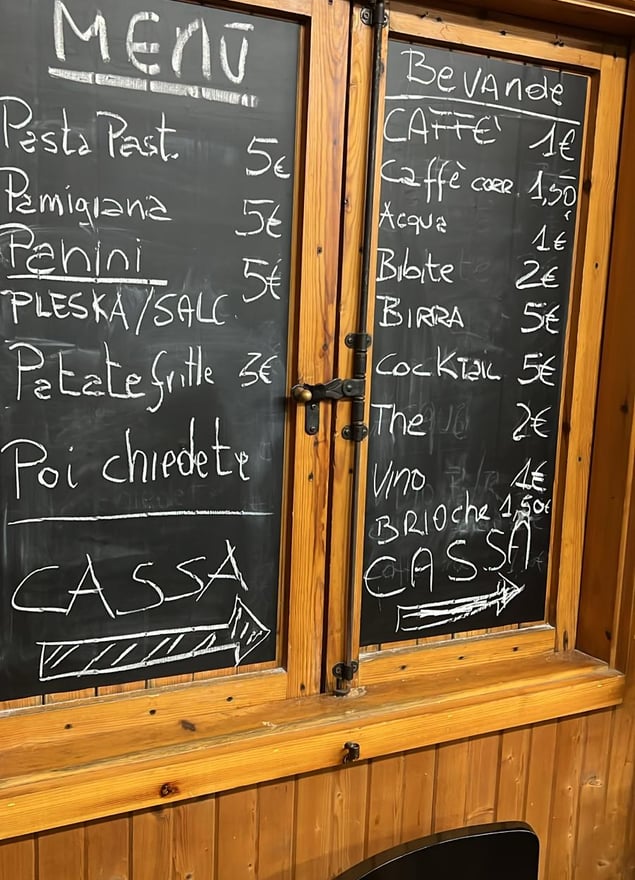 MENÙ
Pasta Past. 5€
Pamigiana 5€
Panini 5€
PLESKA/SALC.
Patate fritte 3€
Poi chiedete
CASSA
Bevande
CAFFE' 1€
Caffè corr. 1,50
Acqua 1€
Bibite 2€
BIRRA 5€
COCKTAIL 5€
The 2€
Vino 1€
BRIOche 1,50€
CASSA